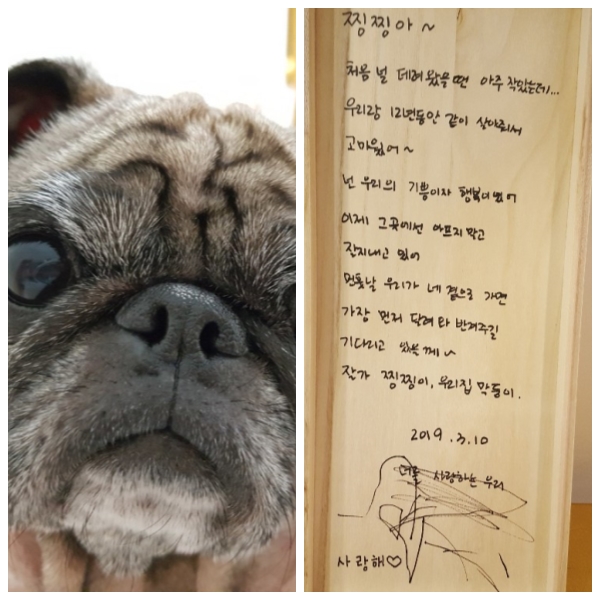 찡찡아 ~
처음 널 데려왔을 땐 아주 작았는데...
우리랑 12년동안 같이 살아줘서
고마웠어~
넌 우리의 기쁨이자 행복이었어
이제 그곳에선 아프지 말고
잘지내고 있어
먼훗날 우리가 네 곁으로 가면
가장 먼저 달려와 반겨주길
기다리고 있을께~
잘가 찡찡이, 우리집 막둥이.
2019.3.10
너를 사랑하는 우리
사랑해♡